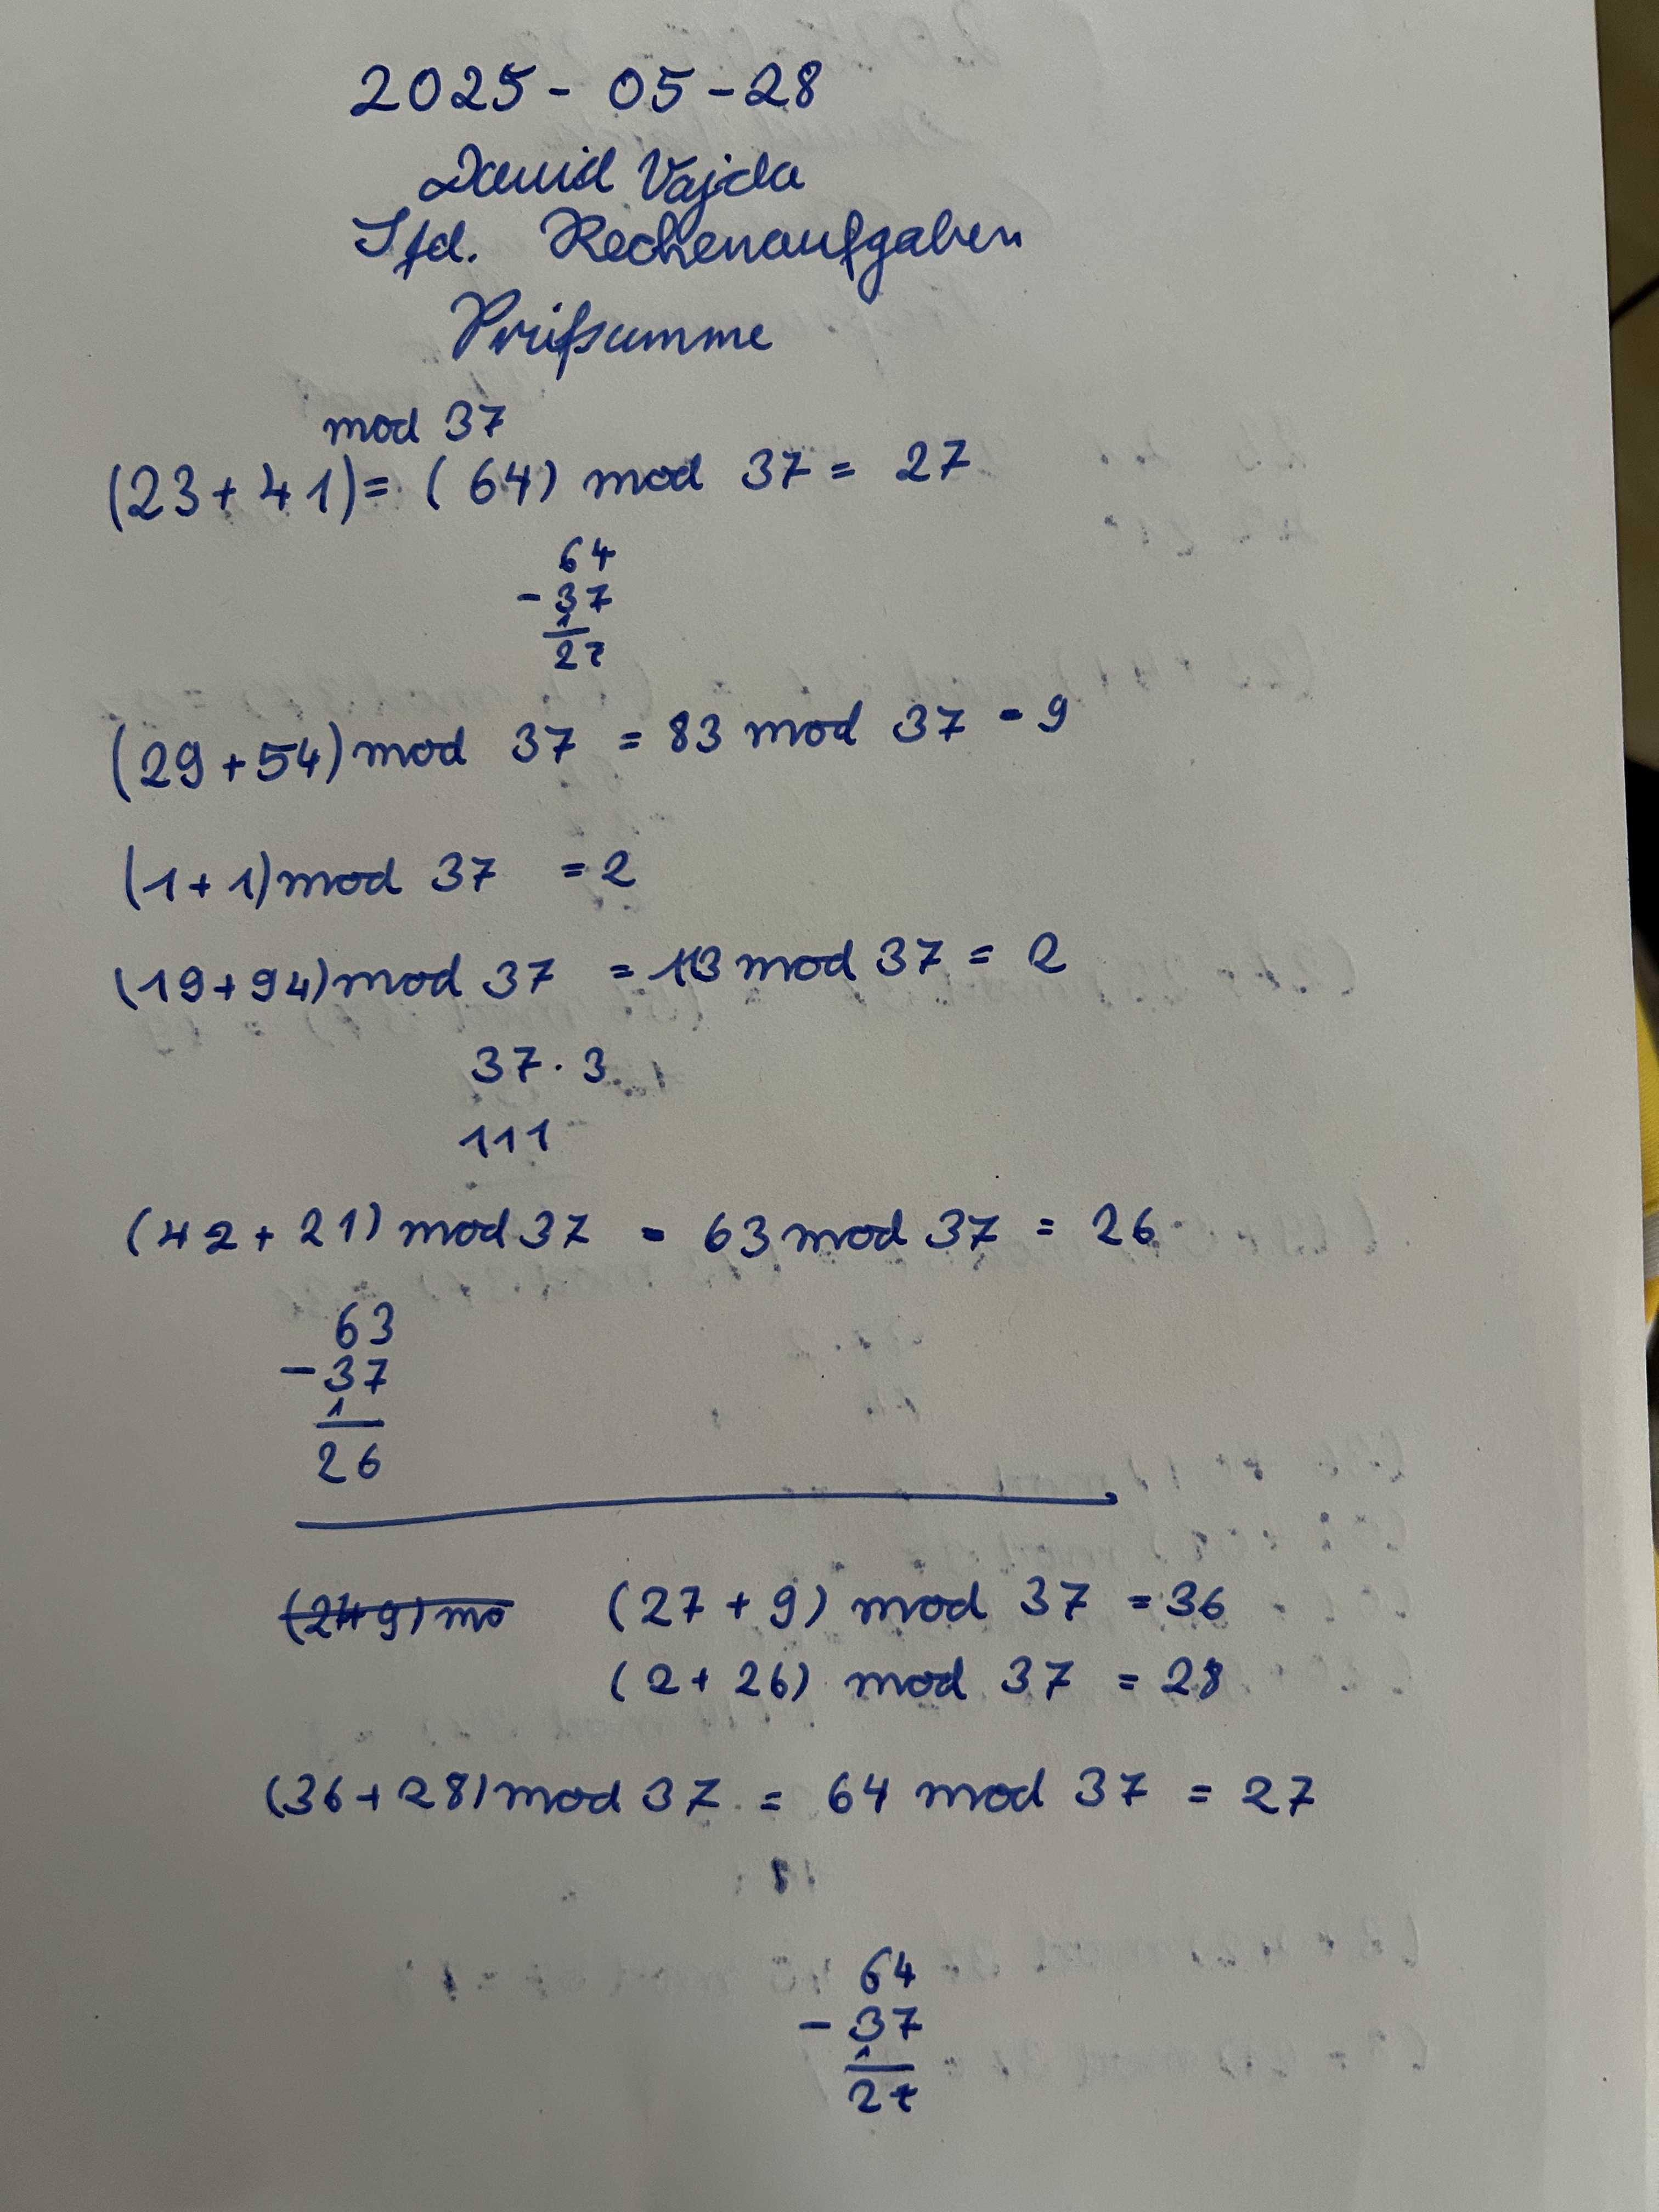 2025-05-28
David Vajda
Lfd. Rechenaufgaben
Prüfsumme
mod 37
(23+41)= (64) mod 37 = 27
64
- 37
1
27
(29+54) mod 37 = 83 mod 37 = 9
(1+1) mod 37 = 2
(19+94) mod 37 = 113 mod 37 = 2
37 · 3
111
(42+21) mod 37 = 63 mod 37 = 26
63
- 37
1
26
(27+9) mod 37 = 36
(2+26) mod 37 = 28
(36+28) mod 37 = 64 mod 37 = 27
64
- 37
1
27